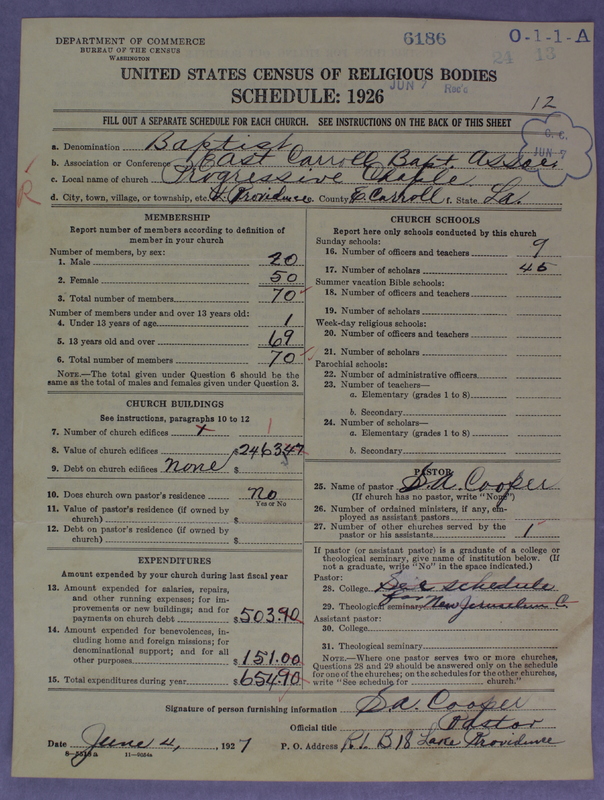 DEPARTMENT OF COMMERCE
BUREAU OF THE CENSUS
WASHINGTON
6186
O-1-1-A
24 13
UNITED STATES CENSUS OF RELIGIOUS BODIES
JUN 7 Rec'd
SCHEDULE: 1926
12
FILL OUT A SEPARATE SCHEDULE FOR EACH CHURCH. SEE INSTRUCTIONS ON THE BACK OF THIS SHEET
C. C.
JUN 7
R
a. Denomination Baptist
b. Association or Conference East Carroll Bapt. Assoc.
c. Local name of church Progressive Chaple
d. City, town, village, or township, etc. L. Providence e. County E Carroll f. State La.
MEMBERSHIP
Report number of members according to definition of member in your church
Number of members, by sex:
1. Male 20
2. Female 50
3. Total number of members 70
Number of members under and over 13 years old:
4. Under 13 years of age 1
5. 13 years old and over 69
6. Total number of members 70
NOTE.—The total given under Question 6 should be the same as the total of males and females given under Question 3.
CHURCH BUILDINGS
See instructions, paragraphs 10 to 12
7. Number of church edifices 1
8. Value of church edifices $
9. Debt on church edifices none $
10. Does church own pastor's residence no
Yes or No
11. Value of pastor's residence (if owned by church) $
12. Debt on pastor's residence (if owned by church) $
EXPENDITURES
Amount expended by your church during last fiscal year
13. Amount expended for salaries, repairs, and other running expenses; for improvements or new buildings; and for payments on church debt $503.90
14. Amount expended for benevolences, including home and foreign missions; for denominational support; and for all other purposes $151.00
15. Total expenditures during year $654.90
CHURCH SCHOOLS
Report here only schools conducted by this church
Sunday schools:
16. Number of officers and teachers 9
17. Number of scholars 45
Summer vacation Bible schools:
18. Number of officers and teachers
19. Number of scholars
Week-day religious schools:
20. Number of officers and teachers
21. Number of scholars
Parochial schools:
22. Number of administrative officers
23. Number of teachers—
a. Elementary (grades 1 to 8)
b. Secondary
24. Number of scholars—
a. Elementary (grades 1 to 8)
b. Secondary
PASTOR
25. Name of pastor S.A. Cooper
(If church has no pastor, write "None")
26. Number of ordained ministers, if any, employed as assistant pastors
27. Number of other churches served by the pastor or his assistants 1
If pastor (or assistant pastor) is a graduate of a college or theological seminary, give name of institution below. (If not a graduate, write "No" in the space indicated.)
Pastor:
28. College See schedule
29. Theological seminary for New Jerusalem C.
Assistant pastor:
30. College
31. Theological seminary
NOTE.—Where one pastor serves two or more churches, Questions 28 and 29 should be answered only on the schedule for one of the churches; on the schedules for the other churches, write "See schedule for church."
Signature of person furnishing information S.A. Cooper
Official title Pastor
Date June 4, 1927 P. O. Address R.1. B 18 Lake Providence
8-5513a 11-9054a